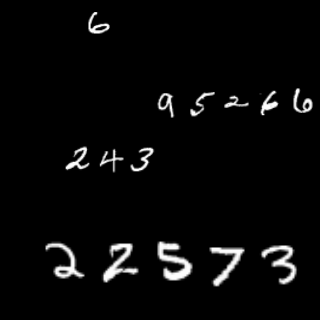 6
95266
243
22573